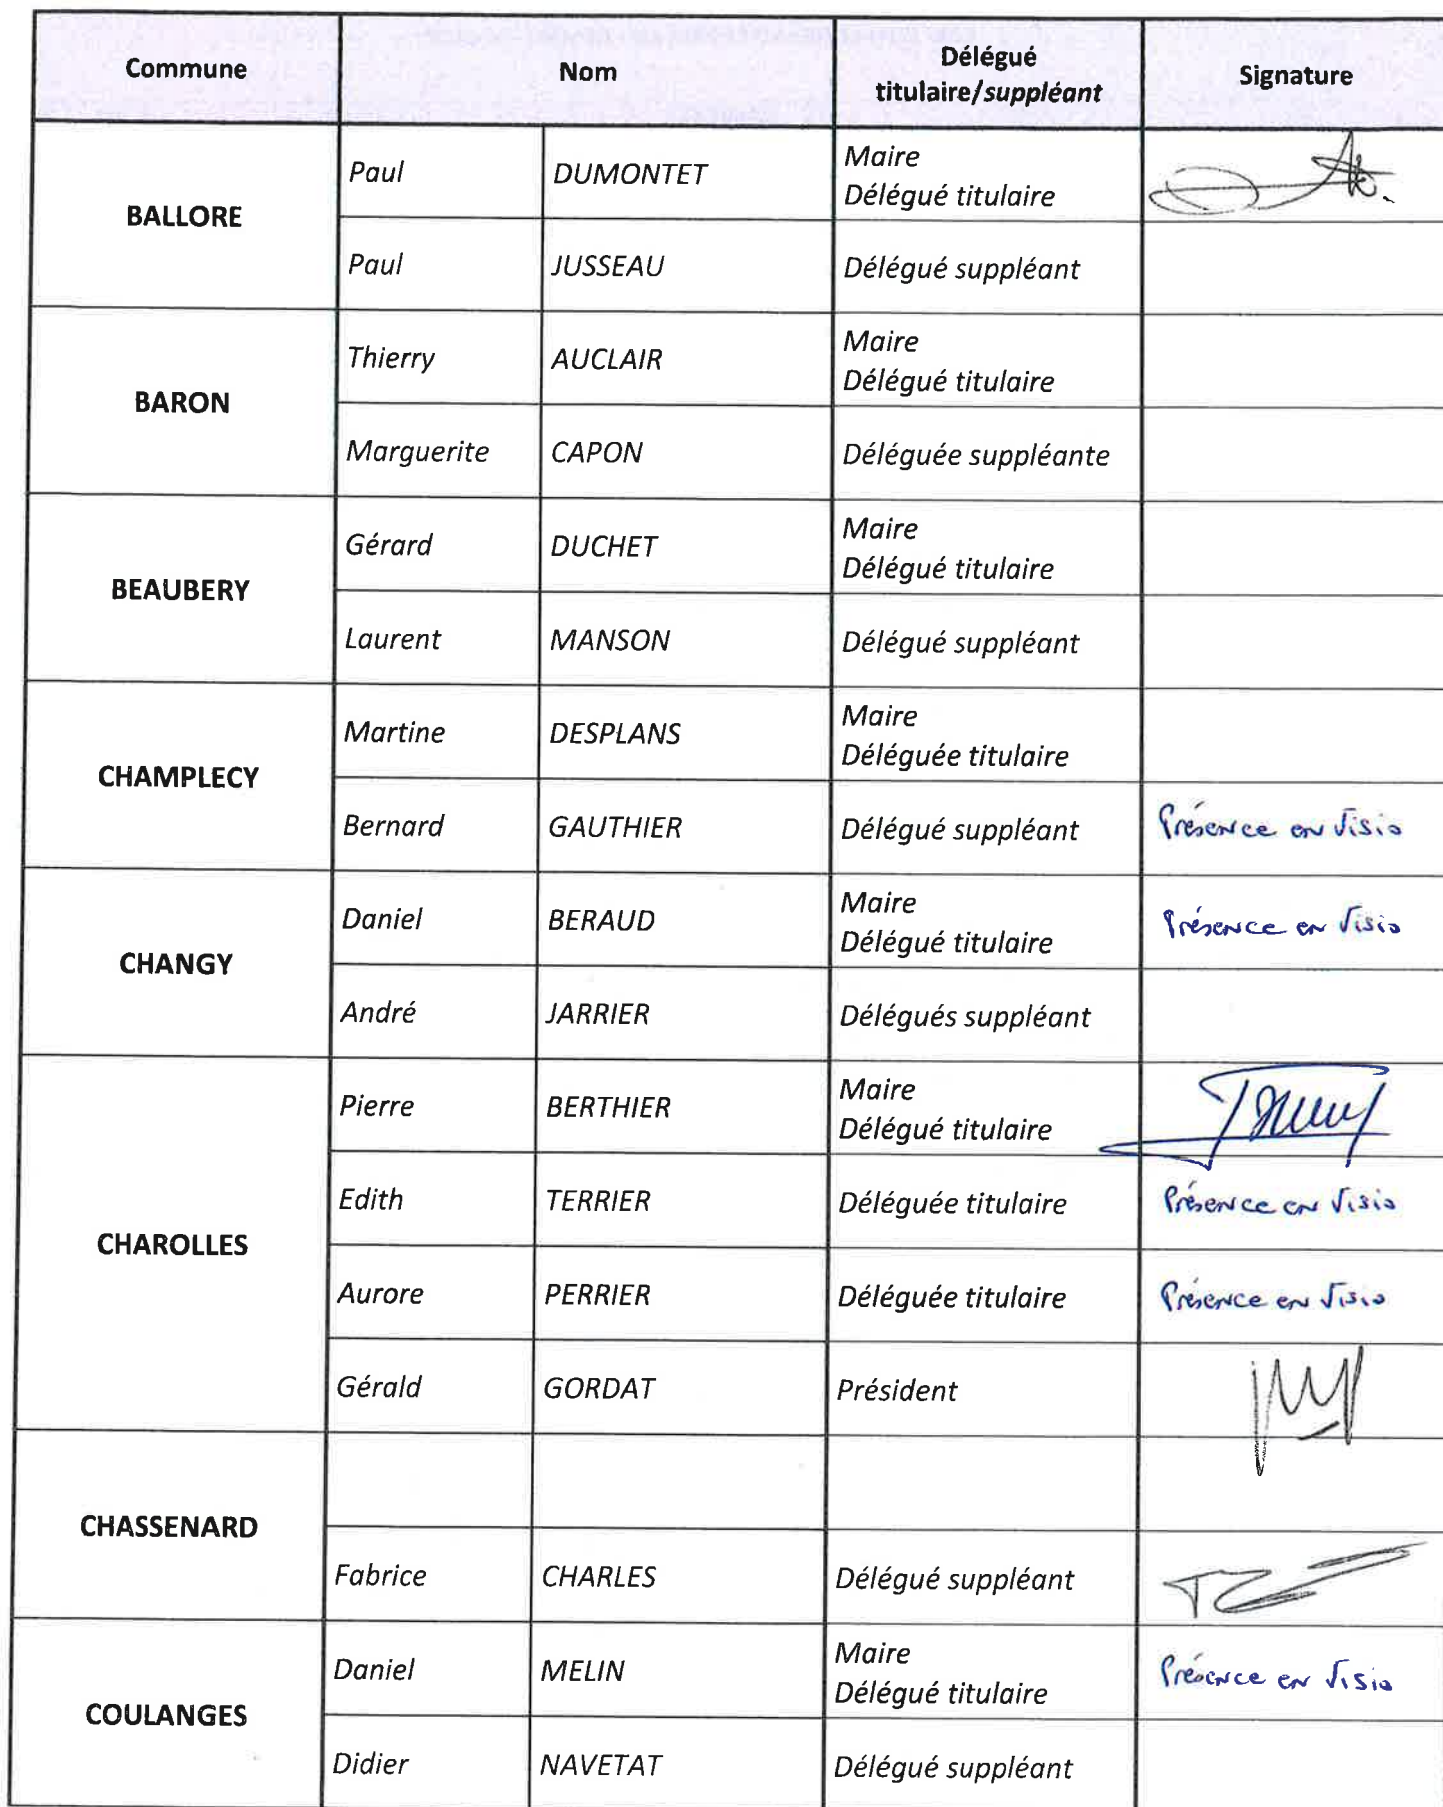 Commune Nom Délégué titulaire/suppléant Signature
BALLORE
Paul DUMONTET Maire
Délégué titulaire
Paul JUSSEAU Délégué suppléant
BARON
Thierry AUCLAIR Maire
Délégué titulaire
Marguerite CAPON Déléguée suppléante
BEAUBERY
Gérard DUCHET Maire
Délégué titulaire
Laurent MANSON Délégué suppléant
CHAMPLECY
Martine DESPLANS Maire
Déléguée titulaire
Bernard GAUTHIER Délégué suppléant Présence en visio
CHANGY
Daniel BERAUD Maire
Délégué titulaire Présence en visio
André JARRIER Délégués suppléant
CHAROLLES
Pierre BERTHIER Maire
Délégué titulaire
Edith TERRIER Déléguée titulaire Présence en visio
Aurore PERRIER Déléguée titulaire Présence en visio
Gérald GORDAT Président
CHASSENARD
Fabrice CHARLES Délégué suppléant
COULANGES
Daniel MELIN Maire
Délégué titulaire Présence en visio
Didier NAVETAT Délégué suppléant